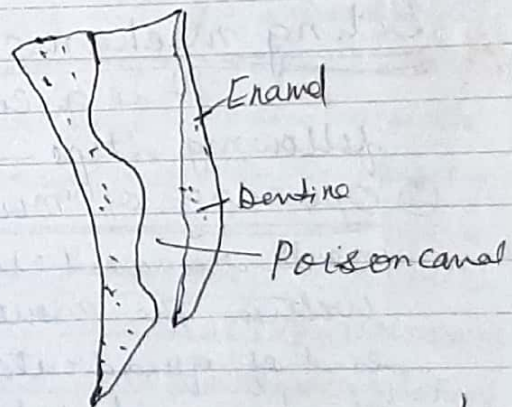 Enamel
Dentine
Poison canal